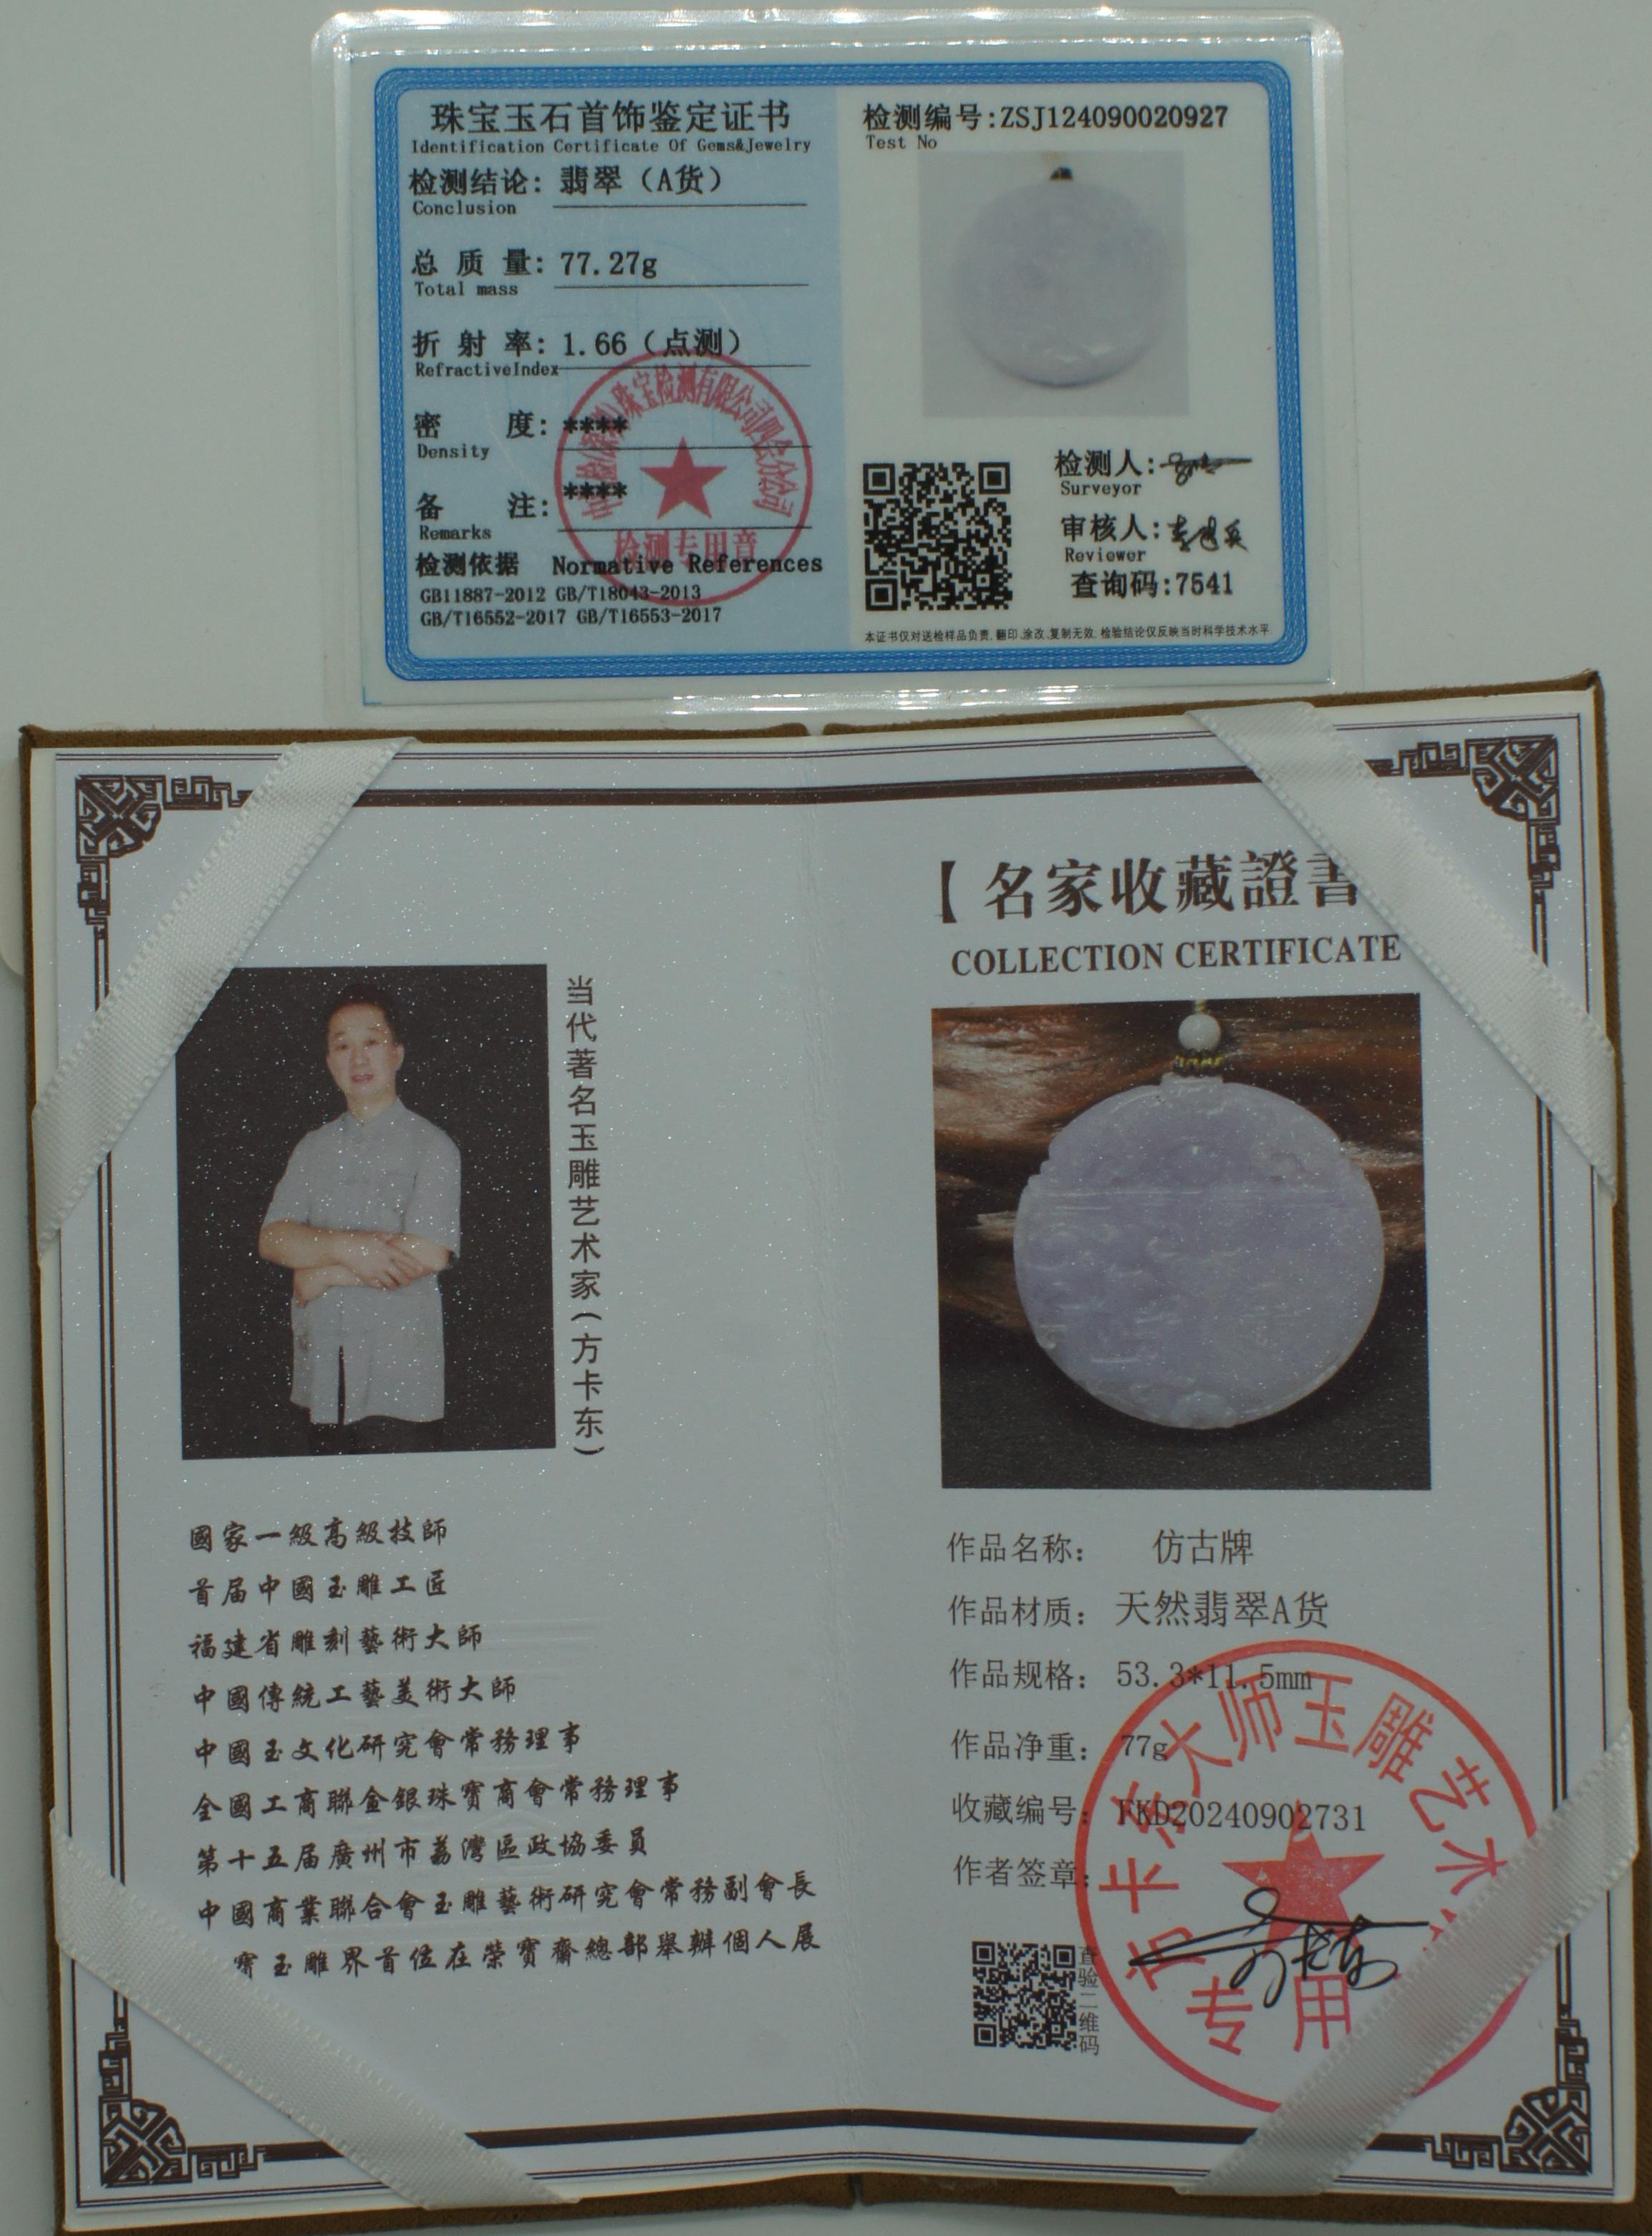 珠宝玉石首饰鉴定证书
Identification Certificate Of Gems&Jewelry
检测结论: 翡翠（A货）
Conclusion
总 质 量: 77.27g
Total mass
折 射 率: 1.66（点测）
RefractiveIndex
密 度: ****
Density
备 注: ****
Remarks
检测依据 Normative References
GB11887-2012 GB/T18043-2013
GB/T16552-2017 GB/T16553-2017
珠宝检测有限公司四会分公司
检测专用章
检测编号:ZSJ124090020927
Test No
检测人:
Surveyor
审核人:
Reviewer
查询码:7541
本证书仅对送检样品负责, 翻印、涂改、复制无效, 检验结论仅反映当时科学技术水平
当代著名玉雕艺术家(方卡东)
國家一級高級技師
首届中國玉雕工匠
福建省雕刻藝術大師
中國傳統工藝美術大師
中國玉文化研究會常務理事
全國工商聯金銀珠寶商會常務理事
第十五届廣州市荔灣區政協委員
中國商業聯合會玉雕藝術研究會常務副會長
玉雕界首位在榮寶齋總部舉辦個人展
【名家收藏證書
COLLECTION CERTIFICATE
作品名称: 仿古牌
作品材质: 天然翡翠A货
作品规格: 53.3*11.5mm
作品净重: 77g
收藏编号: FKD20240902731
作者签章:
方卡东大师玉雕艺术
专用
查验二维码